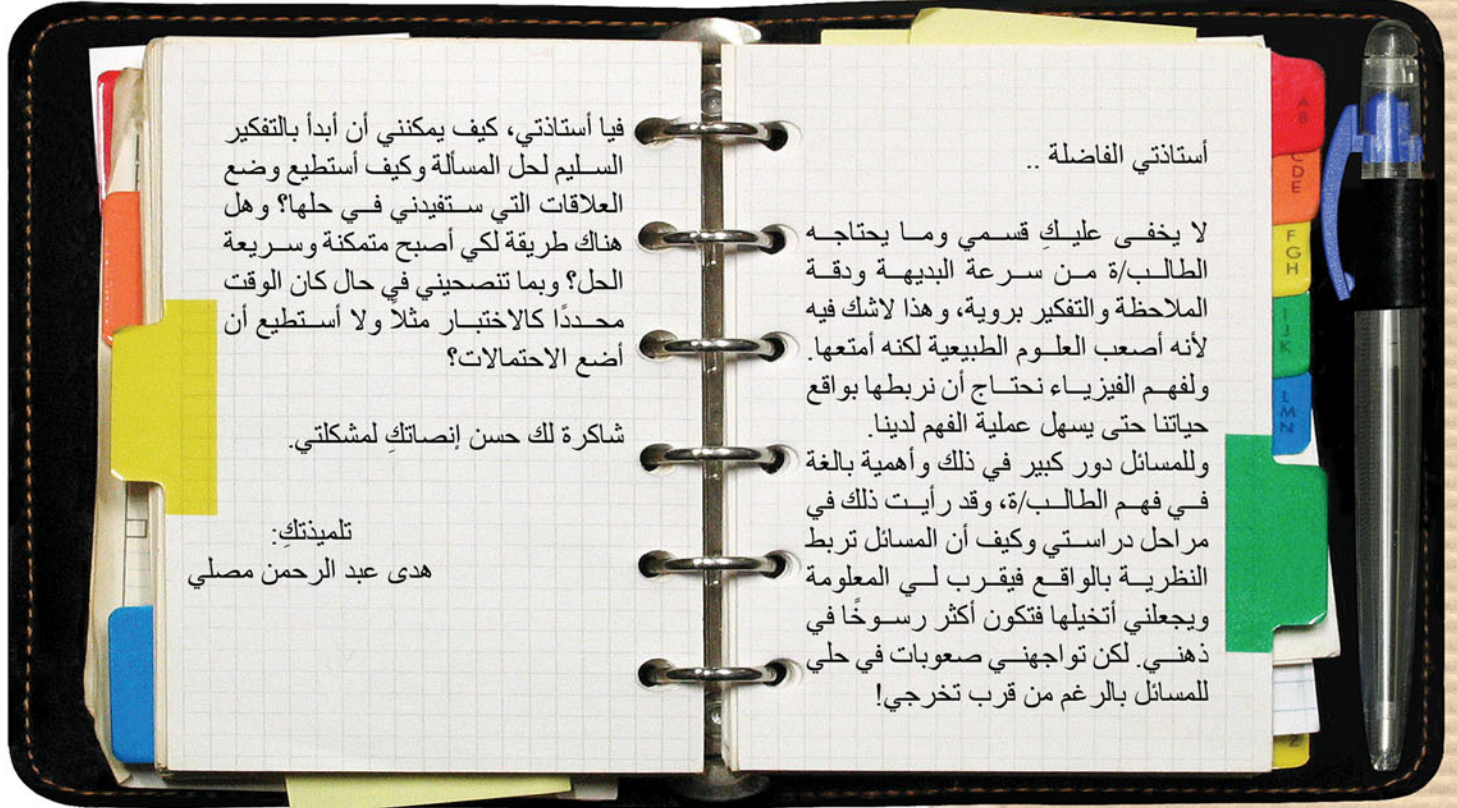 أستاذتي الفاضلة ..
لا يخفى عليكِ قسمي وما يحتاجه
الطالب/ة من سرعة البديهة ودقة
الملاحظة والتفكير بروية، وهذا لاشك فيه
لأنه أصعب العلوم الطبيعية لكنه أمتعها.
ولفهم الفيزياء نحتاج أن نربطها بواقع
حياتنا حتى يسهل عملية الفهم لدينا.
وللمسائل دور كبير في ذلك وأهمية بالغة
في فهم الطالب/ة، وقد رأيت ذلك في
مراحل دراستي وكيف أن المسائل تربط
النظرية بالواقع فيقرب لي المعلومة
ويجعلني أتخيلها فتكون أكثر رسوخًا في
ذهني. لكن تواجهني صعوبات في حلي
للمسائل بالرغم من قرب تخرجي!
فيا أستاذتي، كيف يمكنني أن أبدأ بالتفكير
السليم لحل المسألة وكيف أستطيع وضع
العلاقات التي ستفيدني في حلها؟ وهل
هناك طريقة لكي أصبح متمكنة وسريعة
الحل؟ وبما تنصحيني في حال كان الوقت
محددًا كالاختبار مثلاً ولا أستطيع أن
أضع الاحتمالات؟
شاكرة لك حسن إنصاتكِ لمشكلتي.
تلميذتكِ:
هدى عبد الرحمن مصلي
A
B
C
D
E
F
G
H
I
J
K
L
M
N
Z